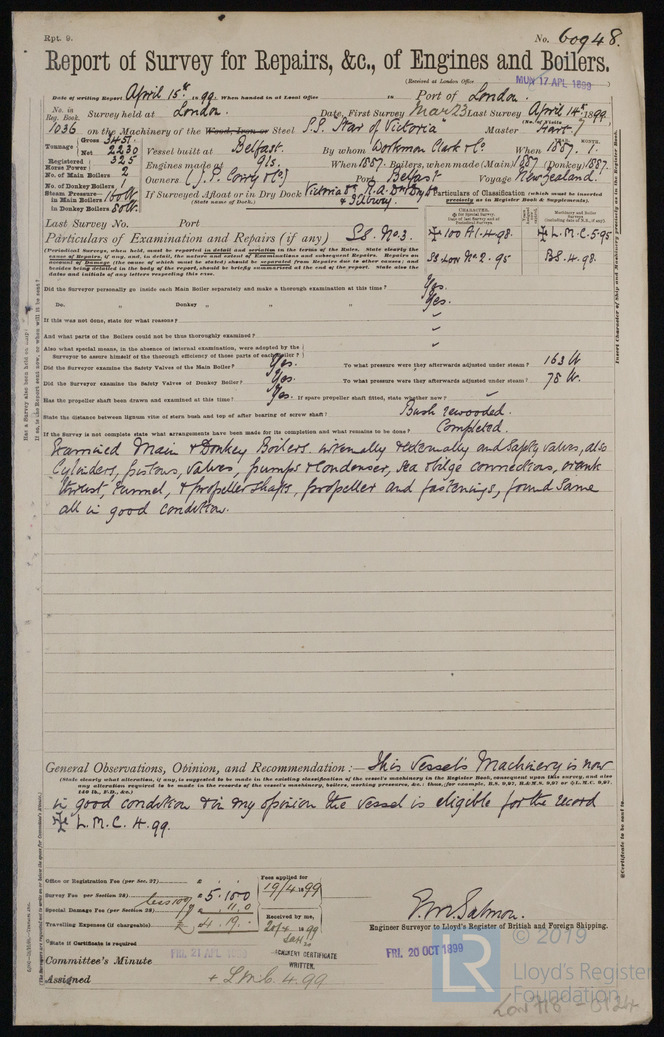 Rpt. 9.
No. 60948.
Report of Survey for Repairs, &c., of Engines and Boilers.
(Received at London Office MON 17 APL 1899
Date of writing Report April 15th 1899. When handed in at Local Office IN Port of London.
No. in Reg. Book. Survey held at London. Date, First Survey Mar 23 Last Survey April 14th 1899
(No. of Visits
1036 on the Machinery of the Wood, Iron or Steel S.S. "Star of Victoria" Master Hart.
Tonnage Gross 3451
Net 2230
Vessel built at Belfast. By whom Workman Clark & Co. When 1887. 1.
Registered Horse Power 325
Engines made at Gls. When 1887. Boilers, when made (Main) 1887 (Donkey) 1887.
No. of Main Boilers 2
Owners (J. P. Corry & Co) Port Belfast Voyage New Zealand.
No. of Donkey Boilers 1
Steam Pressure in Main Boilers 160 lb
in Donkey Boilers 80 lb.
If Surveyed Afloat or in Dry Dock Victoria Dk, R.A. Dk Dry Dk
(State name of Dock.) & Tilbury.
Particulars of Classification (which must be inserted precisely as in Register Book & Supplements).
Last Survey No. Port
Particulars of Examination and Repairs (if any) SS. No 3.
✠ 100 A1. 4.98. ✠ L.M.C. 5.95
SS Lon No 2. 95 B.S. 4.98.
(Periodical Surveys, when held, must be reported in detail and seriatim in the terms of the Rules. State clearly the cause of Repairs, if any, and, in detail, the nature and extent of Examinations and subsequent Repairs. Repairs on account of Damage (the cause of which must be stated) should be separated from Repairs due to other causes; and besides being detailed in the body of the report, should be briefly summarized at the end of the report. State also the dates and initials of any letters respecting this case.
Did the Surveyor personally go inside each Main Boiler separately and make a thorough examination at this time? Yes.
Do. " Donkey " " " Yes.
If this was not done, state for what reasons?
And what parts of the Boilers could not be thus thoroughly examined?
Also what special means, in the absence of internal examination, were adopted by the
Surveyor to assure himself of the thorough efficiency of those parts of each boiler?
Did the Surveyor examine the Safety Valves of the Main Boiler? Yes. To what pressure were they afterwards adjusted under steam? 163 lb
Did the Surveyor examine the Safety Valves of Donkey Boiler? Yes. To what pressure were they afterwards adjusted under steam? 78 lb.
Has the propeller shaft been drawn and examined at this time? Yes. If spare propeller shaft fitted, state whether new?
State the distance between lignum vitæ of stern bush and top of after bearing of screw shaft? Bush rewooded.
If the Survey is not complete state what arrangements have been made for its completion and what remains to be done? Completed.
Examined Main & Donkey Boilers internally & externally and Safety Valves, also
Cylinders, pistons, valves, pumps & Condenser, Sea & bilge connections, crank
thrust, tunnel, & propeller shafts, propeller and fastenings, found same
all in good condition.
General Observations, Opinion, and Recommendation:— This vessel's Machinery is now
(State clearly what alteration, if any, is suggested to be made in the existing classification of the vessel's machinery in the Register Book, consequent upon this survey, and also any alteration required to be made in the records of the vessel's machinery, boilers, working pressures, &c.: thus, for example, B.S. 9,97, B.&M.S. 9,97 or ✠ L.M.C. 9,97. 140 lb., F.D., &c.)
in good condition & in my opinion the vessel is eligible for the record
✠ L.M.C. 4.99.
Office or Registration Fee (per Sec. 27) £ : :
Survey Fee (per Section 28) £ 5.10.0
Special Damage Fee (per Section 28) £ 11.0
Travelling Expenses (if chargeable) £ 4.19.
Fees applied for
19/4 1899
Received by me,
20/4 1899
E. M. Salmon.
Engineer Surveyor to Lloyd's Register of British and Foreign Shipping.
State if Certificate is required
Committee's Minute FRI. 21 APL 1899
MACHINERY CERTIFICATE WRITTEN.
FRI. 20 OCT 1899
Assigned + L.M.C. 4.99
© 2019
LR
Lloyd's Register
Foundation